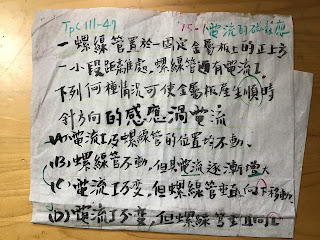 TPC 111-47
15-1電流的磁效應
一螺線管置於一固定金屬板上的正上方
一小段距離處，螺線管通有電流I.
下列何種情況可使金屬板產生順時
針方向的感應渦電流
(A)電流I及螺線管的位置均不動.
(B)螺線管不動，但其電流逐漸增大
(C)電流I不变，但螺線管垂直向下移動
(D)電流I不变，但螺線管垂直向